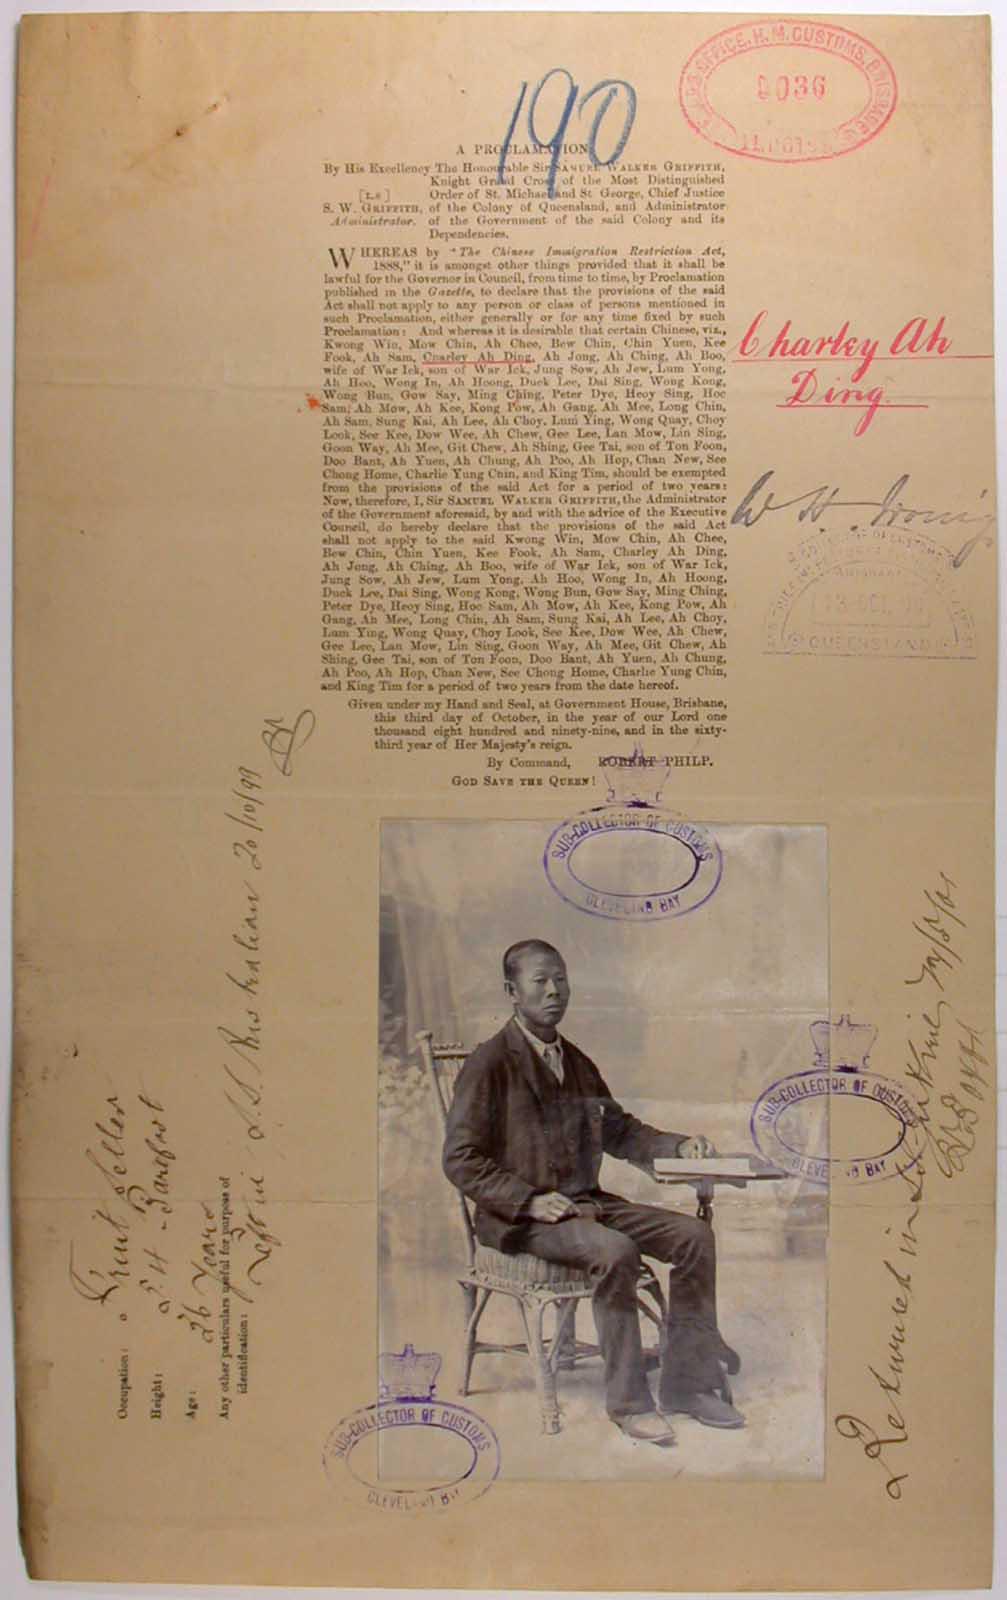 190
OFFICE. H. M. CUSTOMS. BRISBANE
9036
A PROCLAMATION
By His Excellency The Honourable Sir SAMUEL WALKER GRIFFITH,
Knight Grand Cross of the Most Distinguished
[L.S] Order of St. Michael and St. George, Chief Justice
S. W. GRIFFITH, of the Colony of Queensland, and Administrator
Administrator. of the Government of the said Colony and its
Dependencies.
WHEREAS by "The Chinese Immigration Restriction Act,
1888," it is amongst other things provided that it shall be
lawful for the Governor in Council, from time to time, by Proclamation
published in the Gazette, to declare that the provisions of the said
Act shall not apply to any person or class of persons mentioned in
such Proclamation, either generally or for any time fixed by such
Proclamation: And whereas it is desirable that certain Chinese, viz.,
Kwong Win, Mow Chin, Ah Chee, Bew Chin, Chin Yuen, Kee
Fook, Ah Sam, Charley Ah Ding, Ah Jong, Ah Ching, Ah Boo,
wife of War Ick, son of War Ick, Jung Sow, Ah Jew, Lum Yong,
Ah Hoo, Wong In, Ah Hoong, Duck Lee, Dai Sing, Wong Kong,
Wong Bun, Gow Say, Ming Ching, Peter Dye, Heoy Sing, Hoc
Sam, Ah Mow, Ah Kee, Kong Pow, Ah Gang, Ah Mee, Long Chin,
Ah Sam, Sung Kai, Ah Lee, Ah Choy, Lum Ying, Wong Quay, Choy
Look, See Kee, Dow Wee, Ah Chew, Gee Lee, Lan Mow, Lin Sing,
Goon Way, Ah Mee, Git Chew, Ah Shing, Gee Tai, son of Ton Foon,
Doo Bant, Ah Yuen, Ah Chung, Ah Poo, Ah Hop, Chan New, See
Chong Home, Charlie Yung Chin, and King Tim, should be exempted
from the provisions of the said Act for a period of two years:
Now, therefore, I, Sir SAMUEL WALKER GRIFFITH, the Administrator
of the Government aforesaid, by and with the advice of the Executive
Council, do hereby declare that the provisions of the said Act
shall not apply to the said Kwong Win, Mow Chin, Ah Chee,
Bew Chin, Chin Yuen, Kee Fook, Ah Sam, Charley Ah Ding,
Ah Jong, Ah Ching, Ah Boo, wife of War Ick, son of War Ick,
Jung Sow, Ah Jew, Lum Yong, Ah Hoo, Wong In, Ah Hoong,
Duck Lee, Dai Sing, Wong Kong, Wong Bun, Gow Say, Ming Ching,
Peter Dye, Heoy Sing, Hoc Sam, Ah Mow, Ah Kee, Kong Pow, Ah
Gang, Ah Mee, Long Chin, Ah Sam, Sung Kai, Ah Lee, Ah Choy,
Lum Ying, Wong Quay, Choy Look, See Kee, Dow Wee, Ah Chew,
Gee Lee, Lan Mow, Lin Sing, Goon Way, Ah Mee, Git Chew, Ah
Shing, Gee Tai, son of Ton Foon, Doo Bant, Ah Yuen, Ah Chung,
Ah Poo, Ah Hop, Chan New, See Chong Home, Charlie Yung Chin,
and King Tim for a period of two years from the date hereof.
Given under my Hand and Seal, at Government House, Brisbane,
this third day of October, in the year of our Lord one
thousand eight hundred and ninety-nine, and in the sixty-
third year of Her Majesty's reign.
By Command, ROBERT PHILP.
GOD SAVE THE QUEEN!
Charley Ah
Ding.
W. H. Irving
13 OCT
QUEENSLAND
SUB-COLLECTOR OF CUSTOMS
CLEVELAND BAY
SUB-COLLECTOR OF CUSTOMS
CLEVELAND BAY
SUB-COLLECTOR OF CUSTOMS
CLEVELAND BAY
Occupation: Fruit Seller
Height: 5.4 Barefoot
Age: 26 Years
Any other particulars useful for purpose of
identification:
Left in S.S. Australian 20/10/99
Returned in